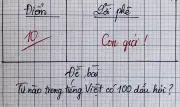 Điểm Lời phê
10 Con giỏi !
Đề bài
Từ nào trong tiếng Việt có 100 dấu hỏi ?